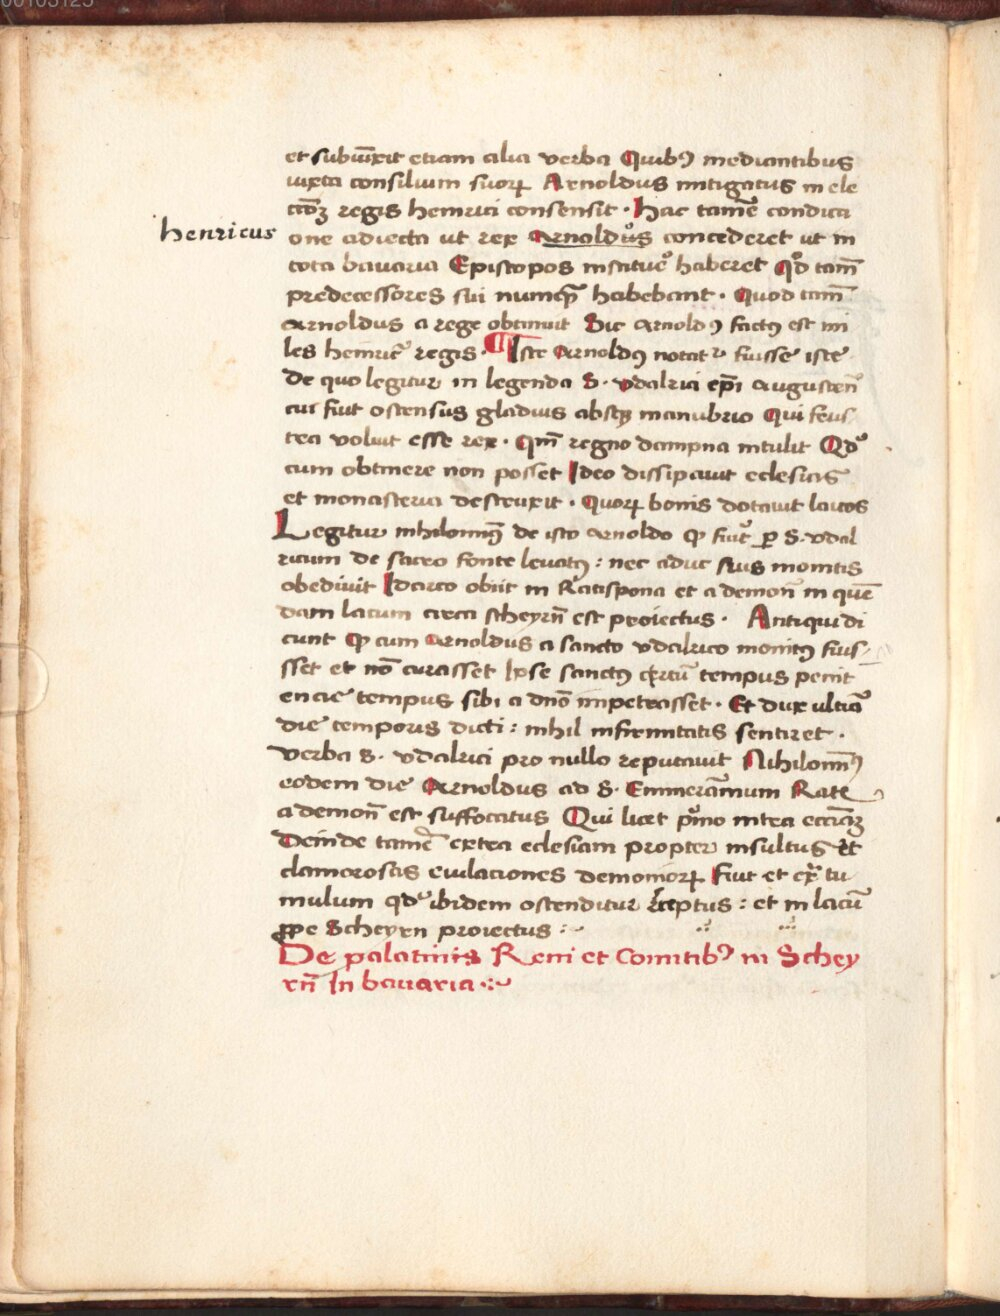 00103125
et subiu̅xit etiam alia verba Quibꝰ mediantibus
iuxta consilium suoꝝ Arnoldus mitigatus in ele
ctōꝫ regis heinrici consensit · Hac tame̅ condici
henricus
one adiecta ut rex Arnoldꝰ concederet ut in
tota bavaria Episcopos instituēͤ haberet Qd̛ tam̅
predecessores sui numꝙ̅ habebant · Quod tam̅
arnoldus a rege obtinuit Sic arnoldꝰ factꝰ est mi
les heinric̅ regis · ¶ Iste Arnoldꝰ notatᷣ fuisse iste
de quo legitur in legenda S · vdalrici ep̅i augusten̅
cui fuit ostensus gladius absqꝫ manubrio Qui frus
tra voluit esse rex · Qm̅ regno dampna intulit Qd̛
cum obtinere non posset Ideo dissipauit eclesias
et monasteria destruxit · Quoꝝ bonis dotauit laicos
Legitur nihilomin̅ꝰ de isto arnoldo ꝙ fuit̛ ꝑ S · vdal
ricum de sacro fonte leuatꝰ : nec aduc suis monitis
obediuit Idcirco obiit in Ratispona et a demon̅ in que̅
dam lacum circa scheyrn̅ est proiectus · Antiqui di
cunt ꝙ cum Arnoldus a sancto vdalrico monitꝰ fuis
sset et no̅ curasset Ipse sanctꝰ certu̅ tempus penit
encie tempus sibi a dn̅o impetrasset · Et dux ultia̅
die temporis dicti : nihil infirmitatis sentiret ·
verba S · vdalrici pro nullo reputauit Nihilomin̅ꝰ
eodem die Arnoldus ad S · Emmera̅mum Rate
a demon̅ est suffocatus Qui licet pͥmo intra eccia̅ꝫ
Deinde tame̅ extra eclesiam propter insultus Et
clamorosas eiulaciones demonioꝝ Fuit et exͣ tu
mulum qd̛ ibidem ostenditur receptus : et in lacu̅
ꝓpe Scheyrn proiectus :·
De palatinis Reni et Comitibꝰ in Schey
rn̅ In bauaria ·:·